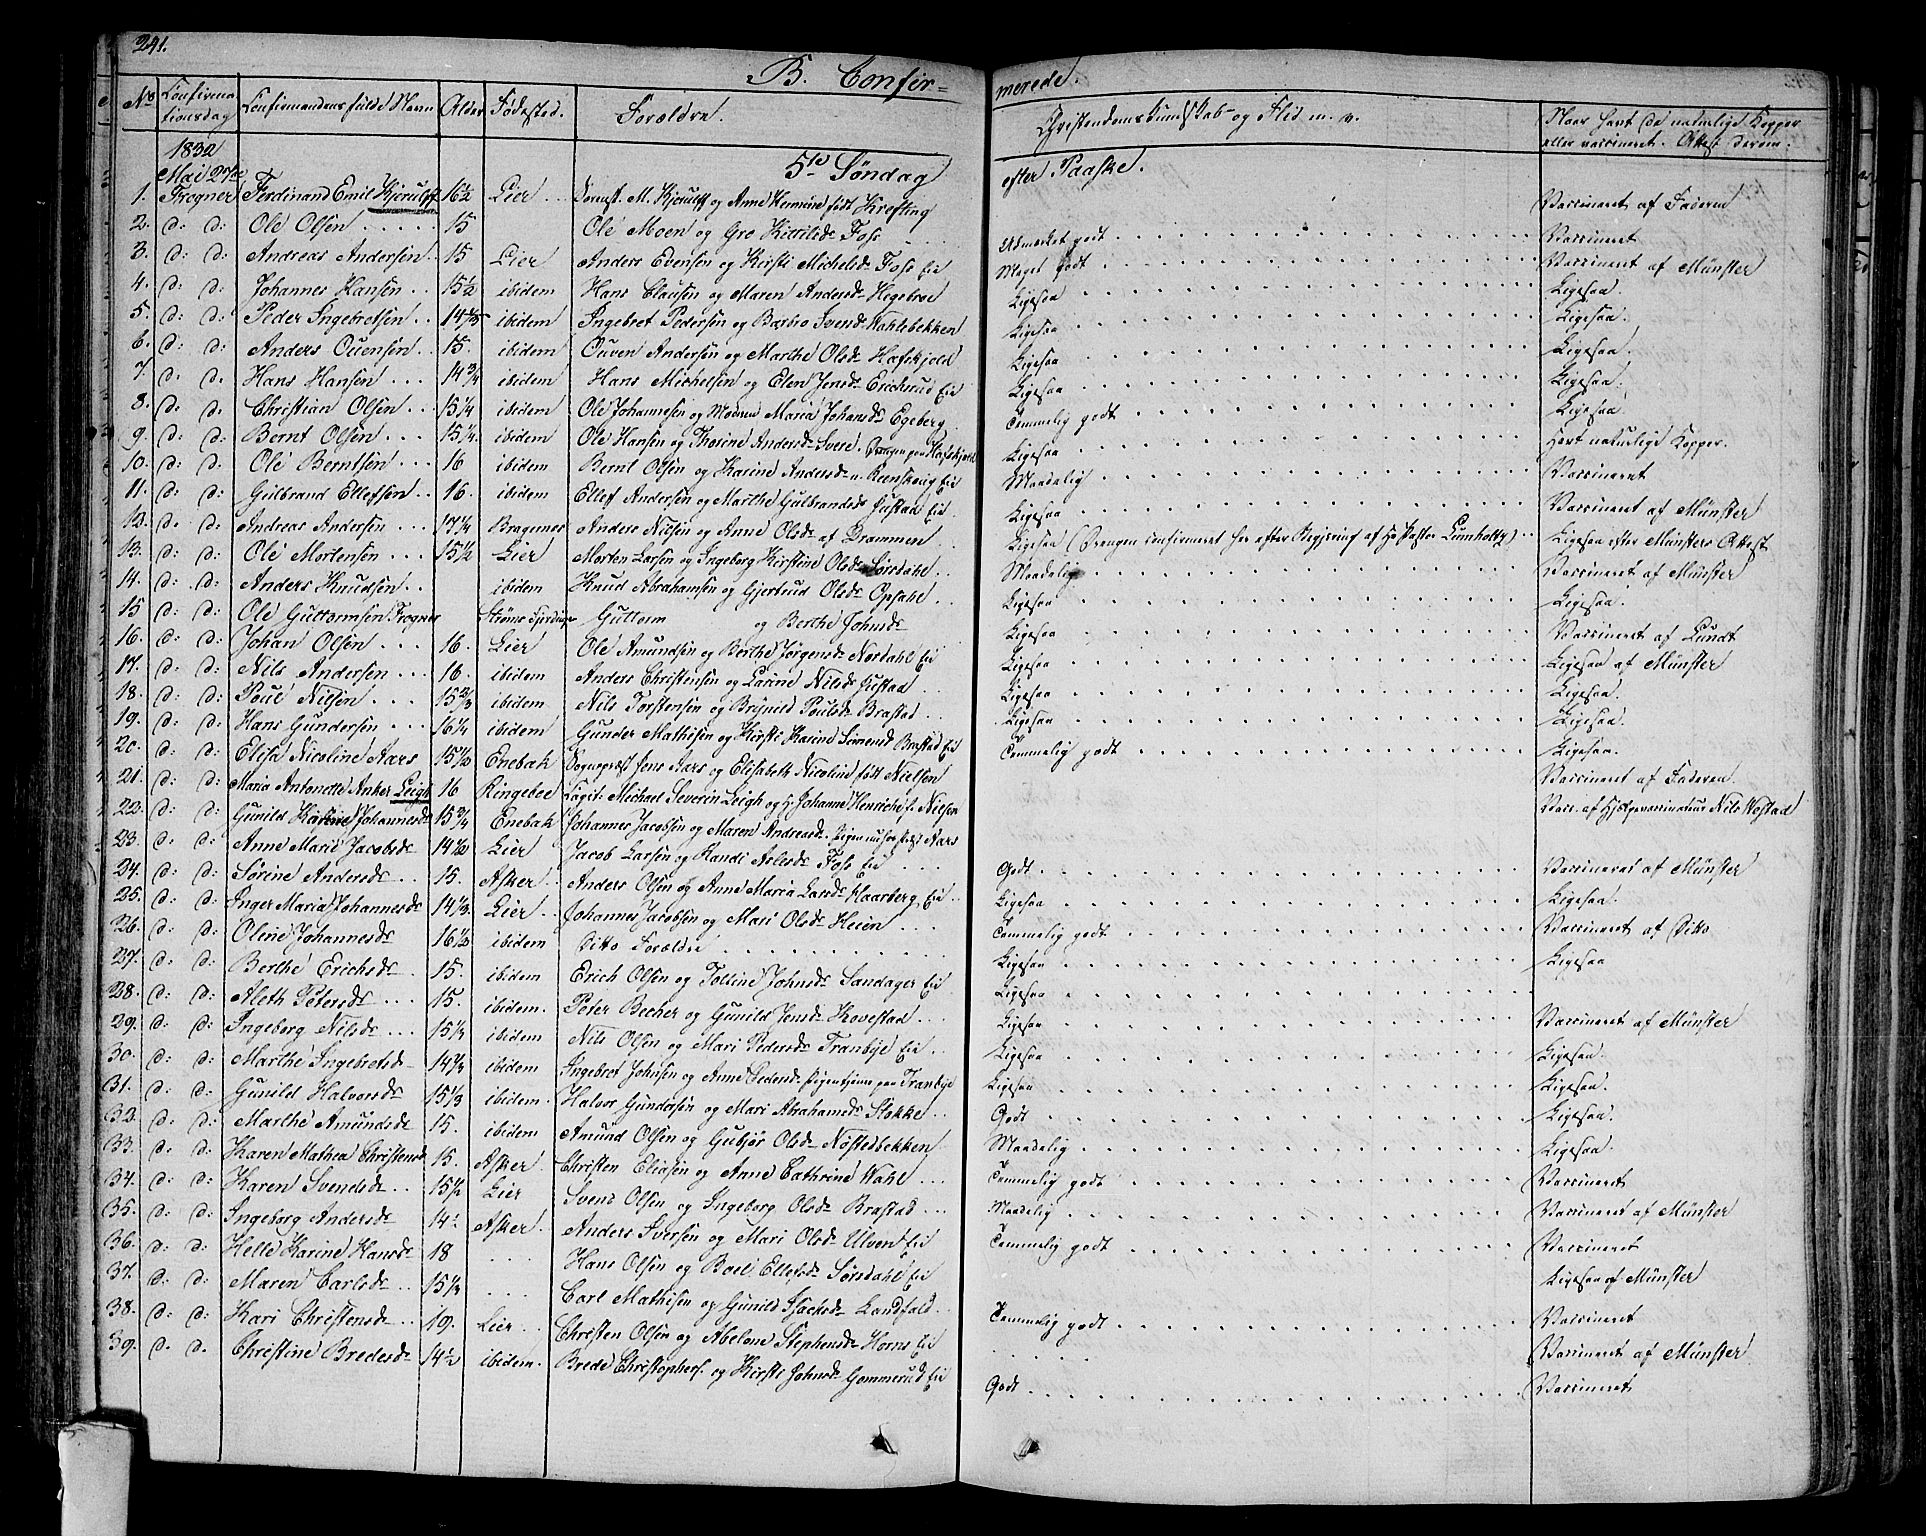 241.
B. Confir=
merede.
No Confirma
tionsdag Confirmandens fulde Navn Alder Fødested. Forældre.
Christendomskundskab og Flid m. v.
Naar havt de naturlige Kopper
eller vaccineret. Attest derom.
1832
Mai 27de 5te Søndag
efter Paaske.
1. Frogner Ferdinand Emil Kjerulff 16½ Lier M. Kjerulff og Anne Hermine født Krefting Vaccineret af Faderen
2. d: d: Ole Olsen 15 Ole Moen og Gro Kittilsdr Foss Udmerket godt Vaccineret
3. d: d: Andreas Andersen 15 Lier Anders Evensen og Kirsti Michelsdr Foss Eie Meget godt Vaccineret af Münster
4. d: d: Johannes Hansen 15½ ibidem Hans Clausen og Maren Andersdr Hegebroe Ligesaa Ligesaa
5. d: d: Peder Ingebretsen ibidem Ingebret Pedersen og Barbro Svends Wahlebekken Ligesaa Ligesaa.
6. d: d: Anders Ouensen 15. ibidem Ouven Andersen og Marthe Olsdr Hafskjold Ligesaa Ligesaa.
7. d. d. Hans Hansen 14¾ ibidem Hans Michelsen og Elen Jensdr Ericksrud Eie Ligesaa Ligesaa.
8. d: d: Christian Olsen 15¼ ibidem Ole Johannesen og Moderen Maria Johansdr Egeberg Temmelig godt Ligesaa.
9. d: d: Bernt Olsen 15¼ ibidem Ole Hansen og Thorine Andersdr Svere. Drengen paa Hafskjold Ligesaa Havt naturlige Kopper.
10. d: d: Ole Berntsen 16 ibidem Bernt Olsen og Karine Andersdr n. Reenskoug Eie Maadelig Vaccineret
11. d: d: Gulbrand Ellefsen 16. ibidem Ellef Andersen og Marthe Gulbrandsdr Justad Eie Ligesaa Vaccineret af Münster
12. d. d. Andreas Andersen 17¼ Bragernes Anders Nilsen og Anne Olsdr af Drammen Ligesaa (Drengen confirmeret her efter Begjering af Hr Pastor Lumholtz) Ligesaa efter Münsters Attest
13. d: d: Ole Mortensen 15½ Lier Morten Larsen og Ingeborg Kirstine Olsdr Sørsdahl Maadelig Vaccineret af Münster
14. d: d: Anders Knudsen ibidem Knud Abrahamsen og Gjertrud Olsdr Opsahl Ligesaa Ligesaa.
15 d: d: Ole Guttormsen Frogner Strøms Guttorm og Berthe Johnsdr Ligesaa Vaccineret af Lundt
16. d: d: Johan Olsen 16. Lier Ole Amundsen og Berthe Jørgensdr Nordahl Eie Ligesaa Ligesaa af Münster
17. d: d: Nils Andersen 16. ibidem Anders Christensen og Larine Nilsdr Justad Ligesaa Ligesaa.
18. d: d: Poul Nilsen 15⅔ ibidem Nils Torstensen og Brynild Poulsdr Brastad Ligesaa Ligesaa.
19. d: d: Hans Gundersen 16¼ ibidem Gunder Mathisen og Kirsti Karine Simensd Brastad Eie Temmelig godt Ligesaa.
20. d: d: Elisa Nicoline Aars 15½ Enebak Sognepræst Jens Aars og Elisabeth Nicoline født Nielsen Vaccineret af Faderen.
21. d: d: Maria Antonette Anker Leigh 16 Ringeboe Capit: Michael Severin Leigh og Johanne Henriche f. Nielsen Vacc. af Hjelpevaccinateur Nils Wostad
22. d: d: Gunild Karine Johannesdr 15¾ Enebak Johannes Jacobsen og Maren Andreasdr. Aars
23. d: d: Anne Marie Jacobsdr 14½ Lier Jacob Larsen og Randi Arlesdr Foss Eie Godt Vaccineret af Münster
24. d: d: Sørine Andersdr 15. Asker Anders Olsen og Anne Maria Larsdr Haarberg Eie Ligesaa Ligesaa.
25. d: d: Inger Maria Johannesdr 14⅓ Lier Johannes Jacobsen og Mari Olsdr Heien Temmelig godt Vaccineret af Ditto
26. d: d: Oline Johannesdr 16½ ibidem Ditto Forældre Ligesaa Ligesaa
27. d: d: Berthe Erichsdr 15. ibidem Erich Olsen og Tolline Johnsdr Sandager Eie Ligesaa
28. d: d: Aleth Petersdr 15. ibidem. Peter Becher og Gunild Jensdr Hovestad Ligesaa Vaccineret af Münster
29. d: d: Ingeborg Nilsdr 15⅓ ibidem Nils Olsen og Mari Pedersdr Tranbye Eie Ligesaa Ligesaa.
30. d: d: Marthe Ingebretsd. 14⅔ ibidem Ingebret Johnsen og Anne Pedersdr Pigen tjener paa Tranbye Ligesaa Ligesaa.
31. d: d: Gunild Halvorsdr 15⅓ ibidem. Halvor Gundersen og Mari Abrahamsdr Stokke Godt Ligesaa.
32. d: d: Marthe Amundsdr 15. ibidem Amund Olsen og Gubjør Olsdr Nøstedbekken Maadelig Ligesaa.
33. d: d: Karen Mathea Christensd 15. Asker. Christen Eliasen og Anne Cathrine Wahl Temmelig godt Vaccineret
34. d: d: Karen Svendsdr 15½ Lier Svend Olsen og Ingeborg Olsdr Brastad Maadelig Vaccineret af Münster
35. d: d: Ingeborg Andersdr 14½ Asker Anders Iversen og Mari Olsdr Ulven Eie Temmelig godt Vaccineret
36. d: d: Helle Karine Hansdr 18 Hans Olsen og Boel Ellefsdr Sørsdahl Eie Ligesaa af Münster
37. d: d: Maren Carlsdr 15⅓ Carl Mathisen og Gunild Isacksdr Landfald Temmelig godt Vaccineret
38. d: d: Kari Christensdr 19. Lier Christen Olsen og Abelone Stephensdr Horns Eie Vaccineret af Münster
39. d. d. Christine Bredesdr 14½ ibidem. Brede Christophers. og Kirsti Johnsdr Gommerud Eie Godt Vaccineret